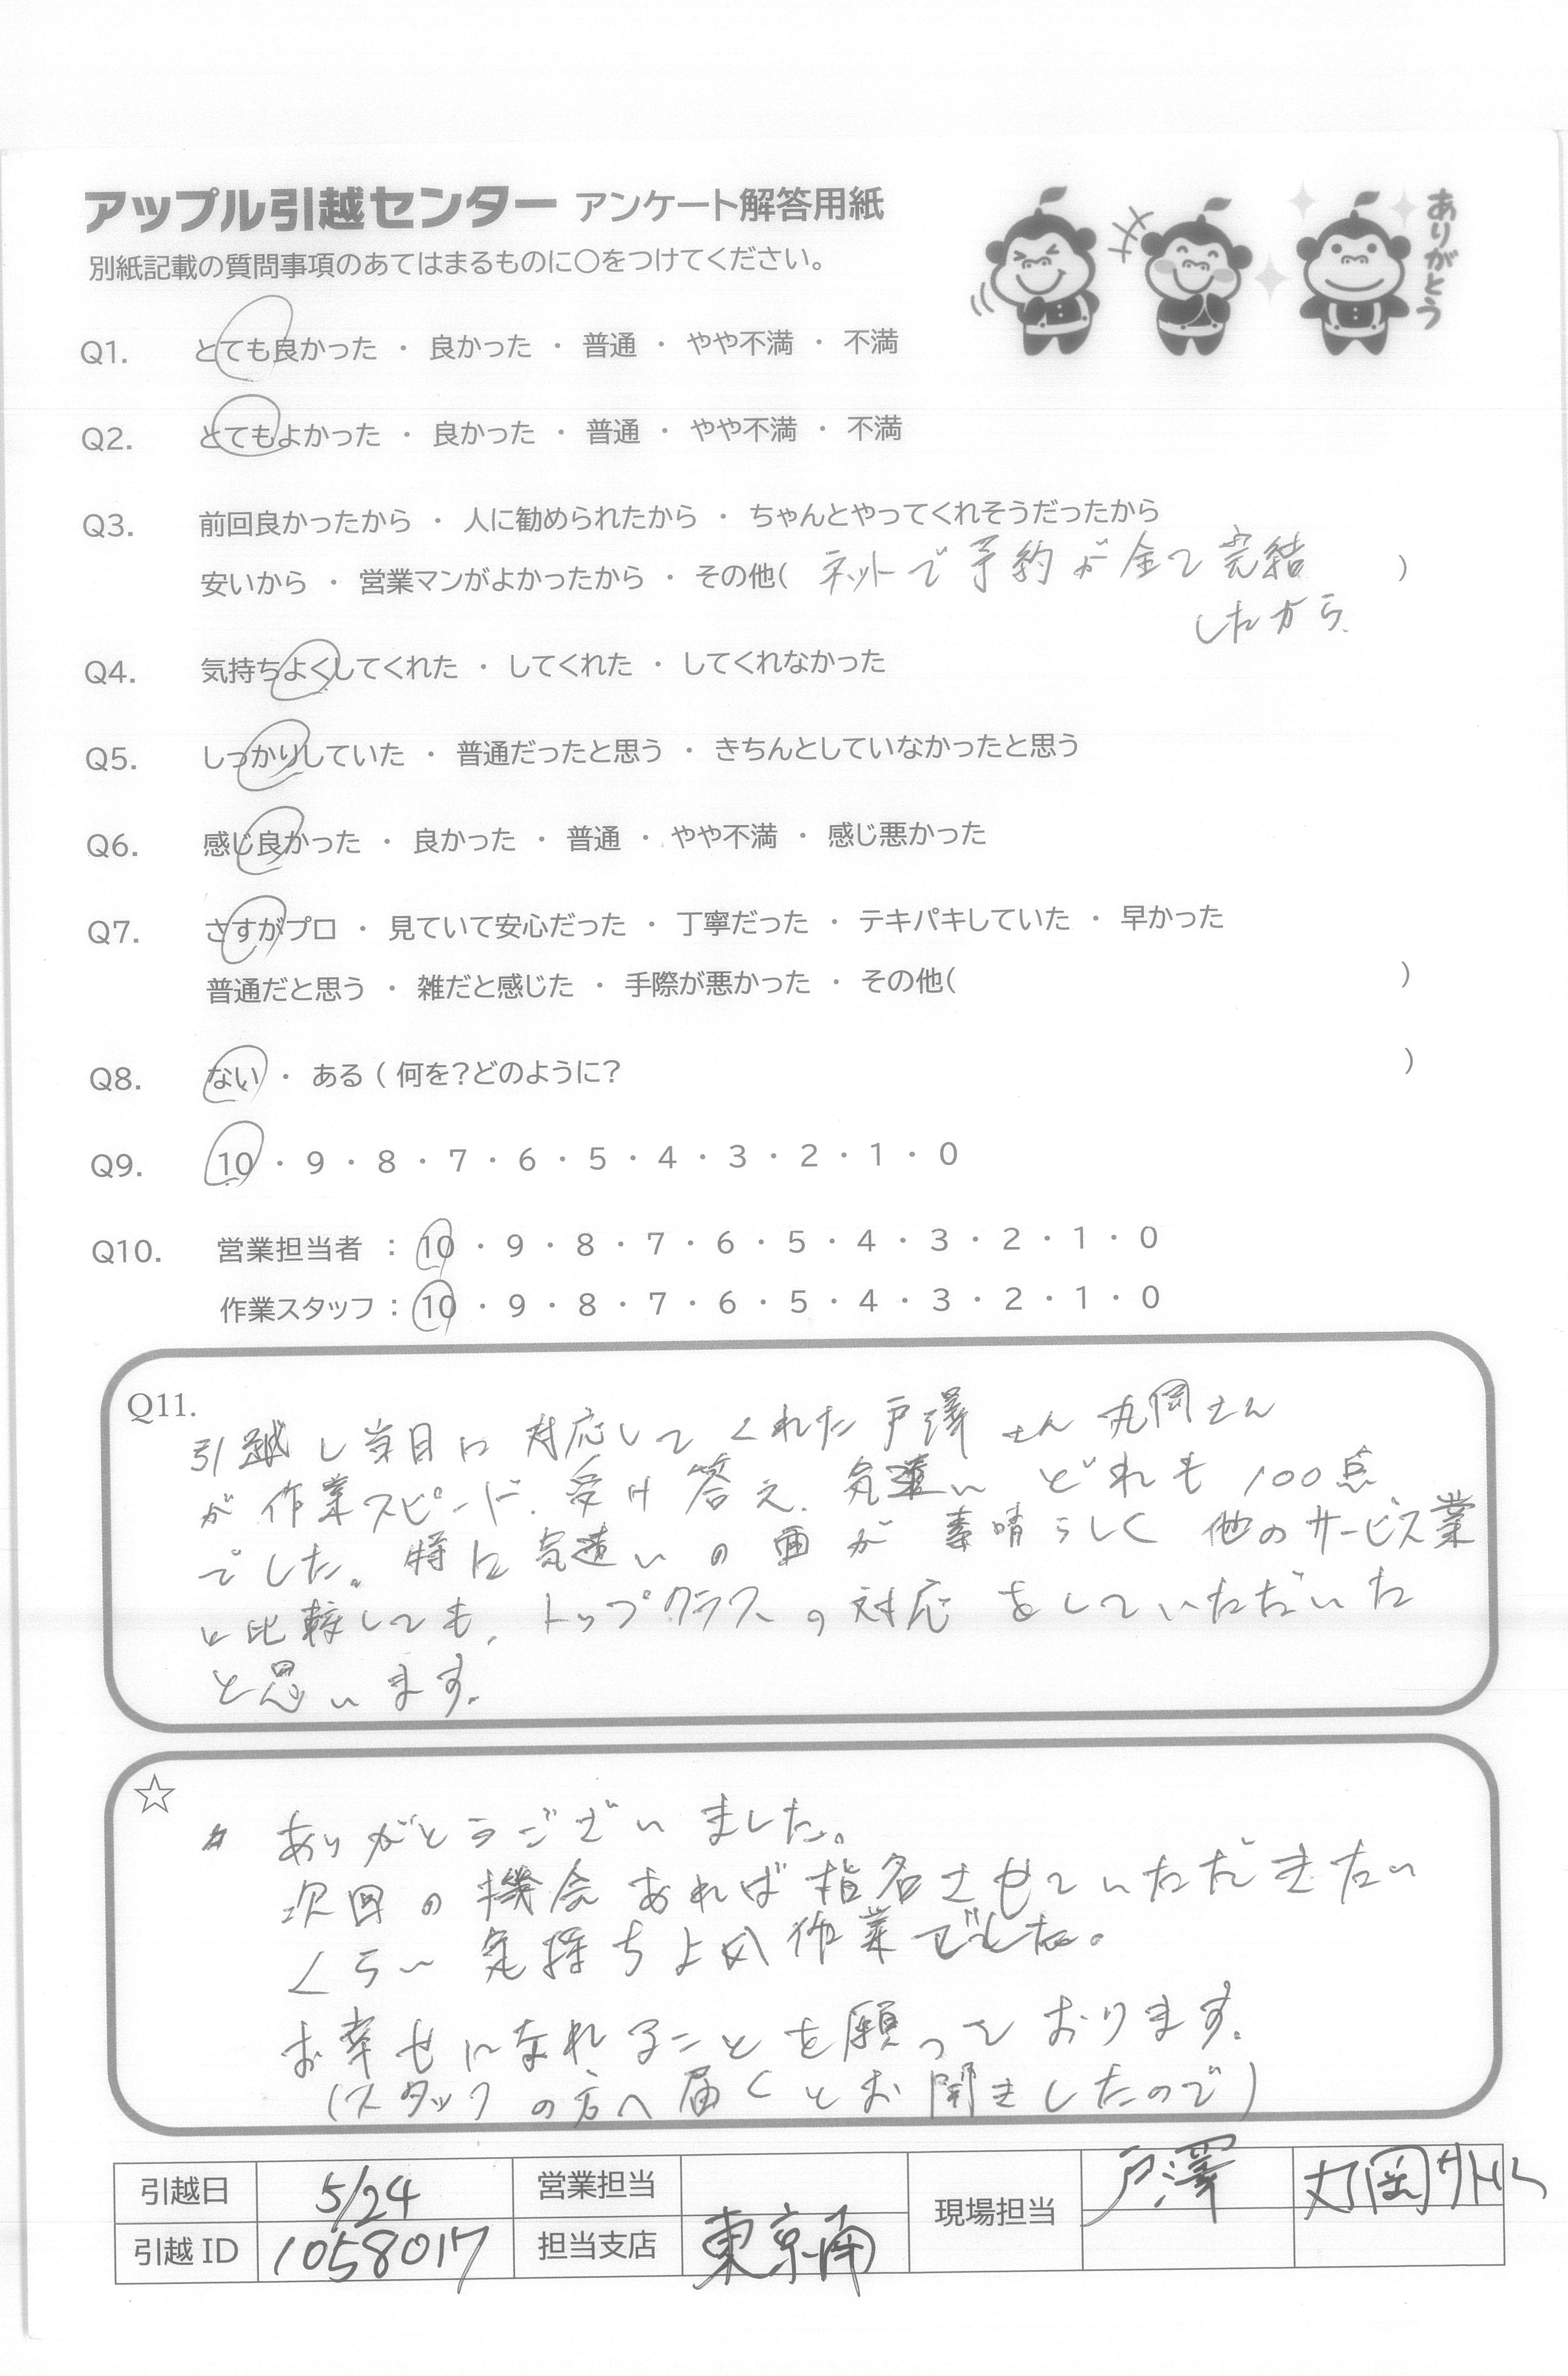 アップル引越センター アンケート解答用紙
別紙記載の質問事項のあてはまるものに〇をつけてください。
ありがとう
Q1. とても良かった ・ 良かった ・ 普通 ・ やや不満 ・ 不満
Q2. とてもよかった ・ 良かった ・ 普通 ・ やや不満 ・ 不満
Q3. 前回良かったから ・ 人に勧められたから ・ ちゃんとやってくれそうだったから
安いから ・ 営業マンがよかったから ・ その他( ネットで予約が全て完結 )
したから
Q4. 気持ちよくしてくれた ・ してくれた ・ してくれなかった
Q5. しっかりしていた ・ 普通だったと思う ・ きちんとしていなかったと思う
Q6. 感じ良かった ・ 良かった ・ 普通 ・ やや不満 ・ 感じ悪かった
Q7. さすがプロ ・ 見ていて安心だった ・ 丁寧だった ・ テキパキしていた ・ 早かった
普通だと思う ・ 雑だと感じた ・ 手際が悪かった ・ その他( )
Q8. ない ・ ある ( 何を?どのように? )
Q9. 10 ・ 9 ・ 8 ・ 7 ・ 6 ・ 5 ・ 4 ・ 3 ・ 2 ・ 1 ・ 0
Q10. 営業担当者 : 10 ・ 9 ・ 8 ・ 7 ・ 6 ・ 5 ・ 4 ・ 3 ・ 2 ・ 1 ・ 0
作業スタッフ : 10 ・ 9 ・ 8 ・ 7 ・ 6 ・ 5 ・ 4 ・ 3 ・ 2 ・ 1 ・ 0
Q11.
引越し当日に対応してくれた戸澤さん丸岡さん
が作業スピード、受け答え、気遣いどれも100点
でした。特に気遣いの面が素晴らしく他のサービス業
に比較しても、トップクラスの対応をしていただいた
と思います。
☆
ありがとうございました。
次回の機会あれば指名させていただきたい
くらい気持ちよい作業でした。
お幸せになれることを願っております。
(スタッフの方へ届くとお聞きしたので)
引越日 5/24 営業担当 現場担当 戸澤 丸岡
引越 ID 1058017 担当支店 東京南